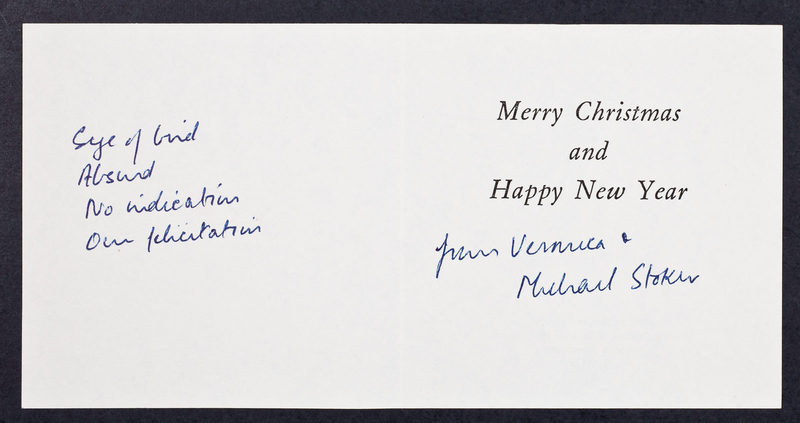 Eye of bird
Absurd
No indication
Our felicitation
Merry Christmas
and
Happy New Year
from Veronica &
Michael Stoker